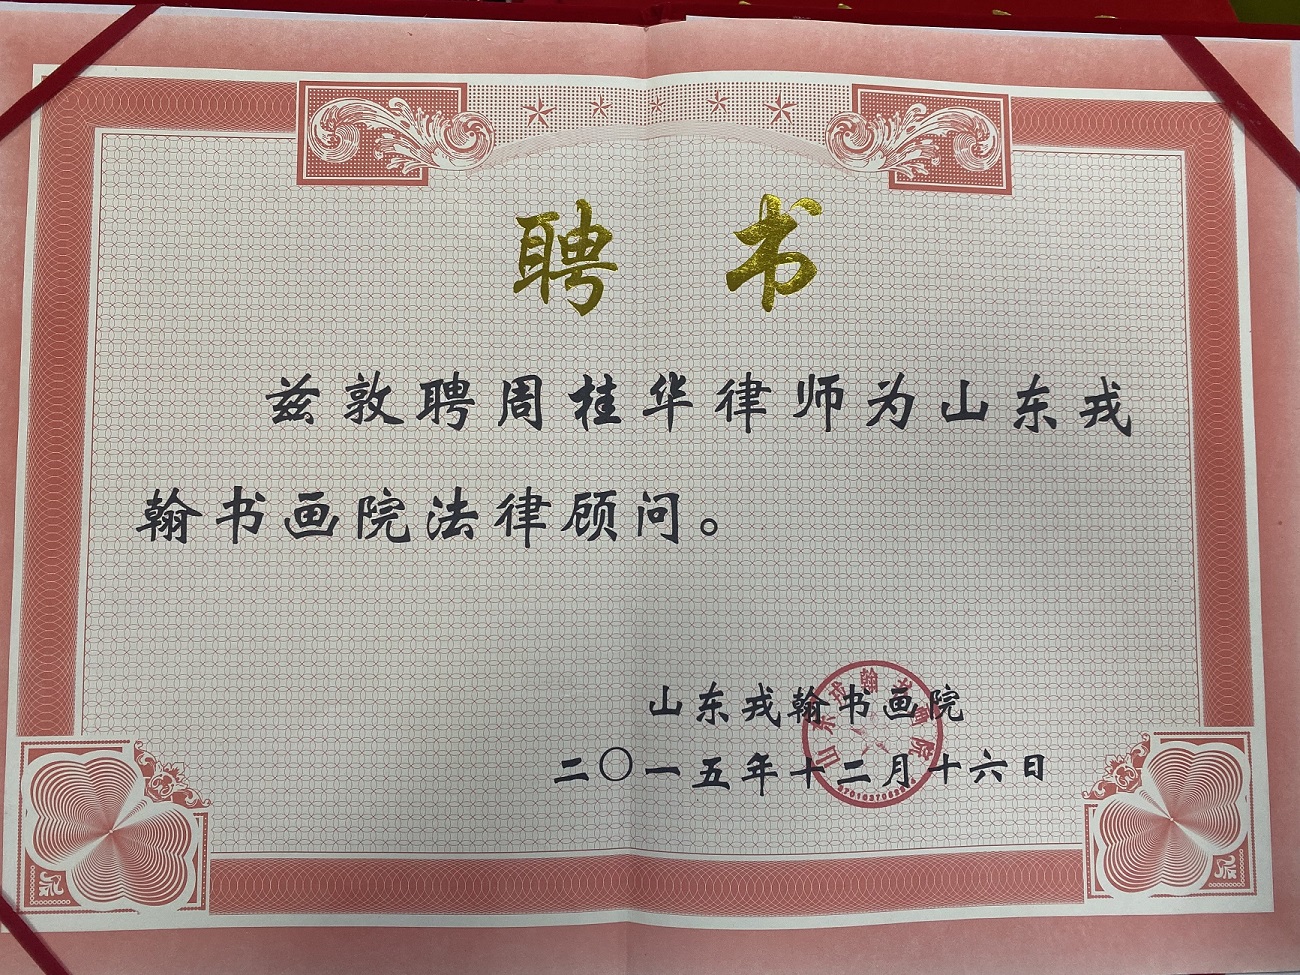 聘书
兹敦聘周桂华律师为山东戎
翰书画院法律顾问。
山东戎翰书画院
二〇一五年十二月十六日
山东戎翰书画院